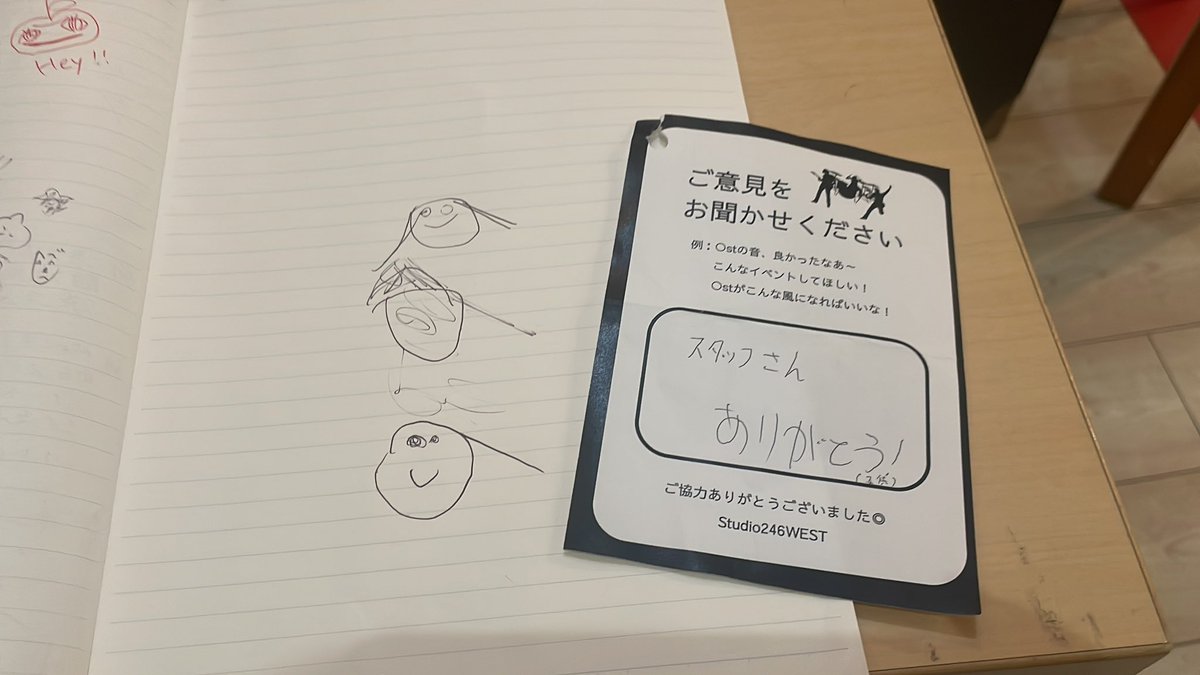 Hey!!
ご意見を
お聞かせください
例：○stの音、良かったなあ〜
こんなイベントしてほしい！
○stがこんな風になればいいな！
スタッフさん
ありがとう！
ご協力ありがとうございました◎
Studio246WEST